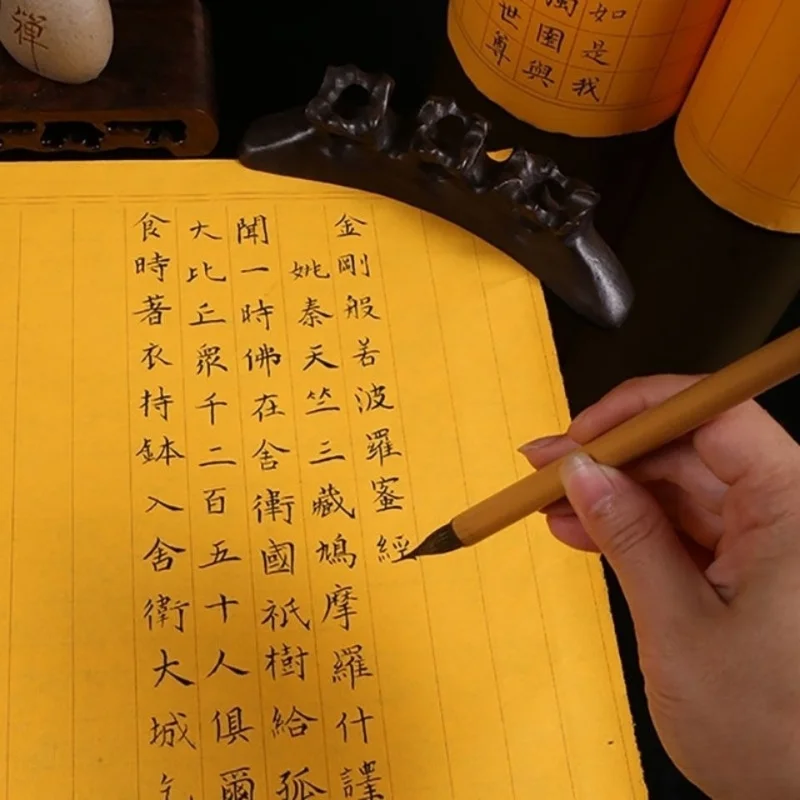 禪
如是我
園與
世尊
金剛般若波羅蜜經
姚秦天竺三藏鳩摩羅什
聞一時佛在舍衛國祇樹給孤
大比丘眾千二百五十人俱爾
食時著衣持鉢入舍衛大城乞